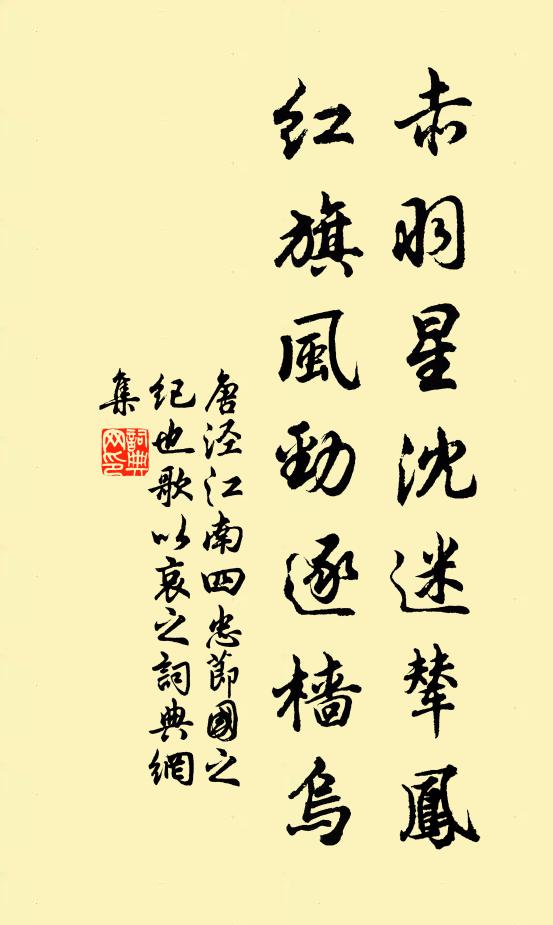 赤羽星沈迷輦鳳
紅旗風勁逐檣烏
唐涇江南四忠節國之
紀也歌以哀之詞典網
集
詞典網印